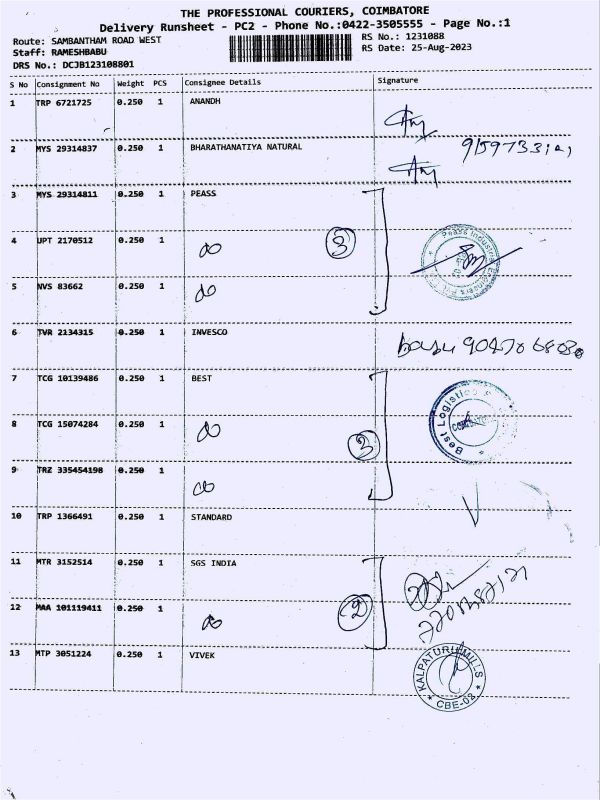 THE PROFESSIONAL COURIERS, COIMBATORE
Delivery Runsheet - PC2 - Phone No.:0422-3505555 - Page No.:1
Route: SAMBANTHAM ROAD WEST RS No.: 1231088
Staff: RAMESHBABU RS Date: 25-Aug-2023
DRS No.: DCJB123108801
S No Consignment No Weight PCS Consignee Details Signature
1 TRP 6721725 0.250 1 ANANDH
2 MYS 29314837 0.250 1 BHARATHANATIYA NATURAL
3 MYS 29314811 0.250 1 PEASS
4 UPT 2170512 0.250 1
3
5 NVS 83662 0.250 1
6 TVR 2134315 0.250 1 INVESCO
7 TCG 10139486 0.250 1 BEST
8 TCG 15074284 0.250 1
3
Best Logistics
9 TRZ 335454198 0.250 1
10 TRP 1366491 0.250 1 STANDARD
11 MTR 3152514 0.250 1 SGS INDIA
12 MAA 101119411 0.250 1
2
13 MTP 3051224 0.250 1 VIVEK
KALPATURU MILLS
CBE-02